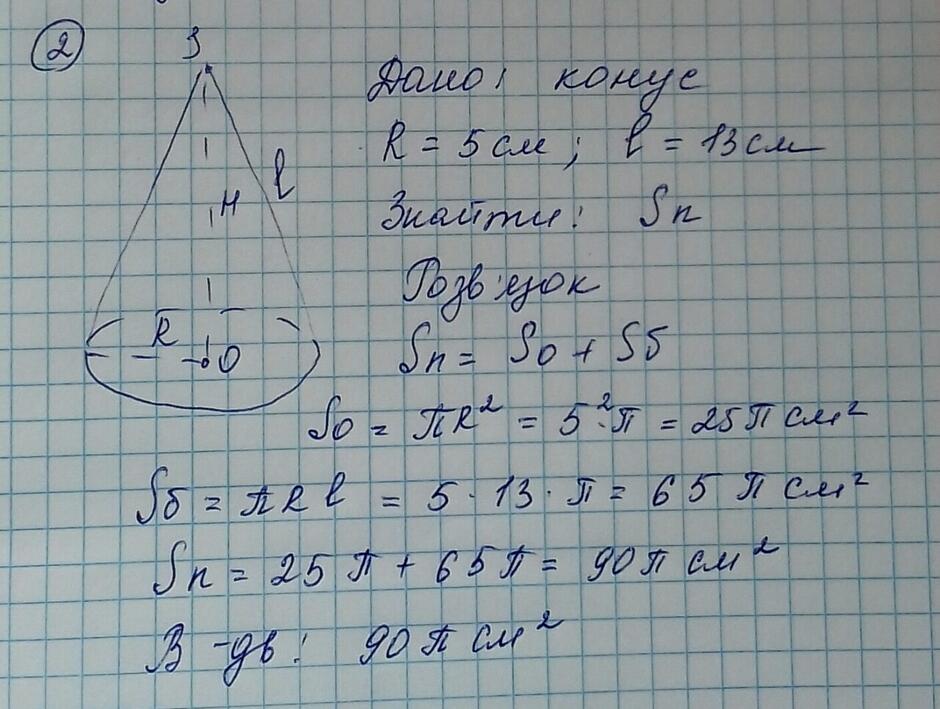 2
S
Дано: конус
R = 5 см; l = 13 см
l
H
Знайти: Sп
Розв'язок
R
O
Sп = So + Sб
So = πR² = 5²·π = 25π см²
Sб = πRl = 5·13·π = 65π см²
Sп = 25π + 65π = 90π см²
В-дь: 90π см²